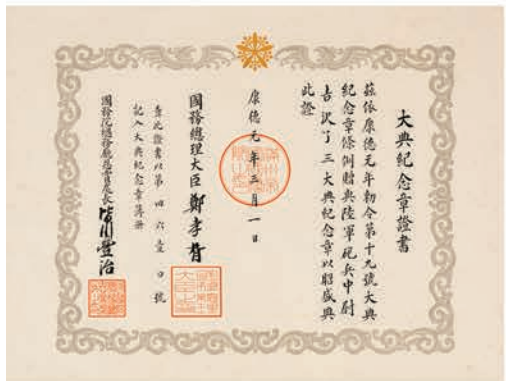 大典紀念章證書
茲依康德元年勅令第十九號大典
紀念章條例贈與陸軍砲兵中尉
吉沢了三大典紀念章以昭盛典
此證
康德元年三月一日
國務總理大臣鄭孝胥
查此證書以第四六壹〇號
記入大典紀念章簿冊
國務院總務廳恩賞處長皆川豐治